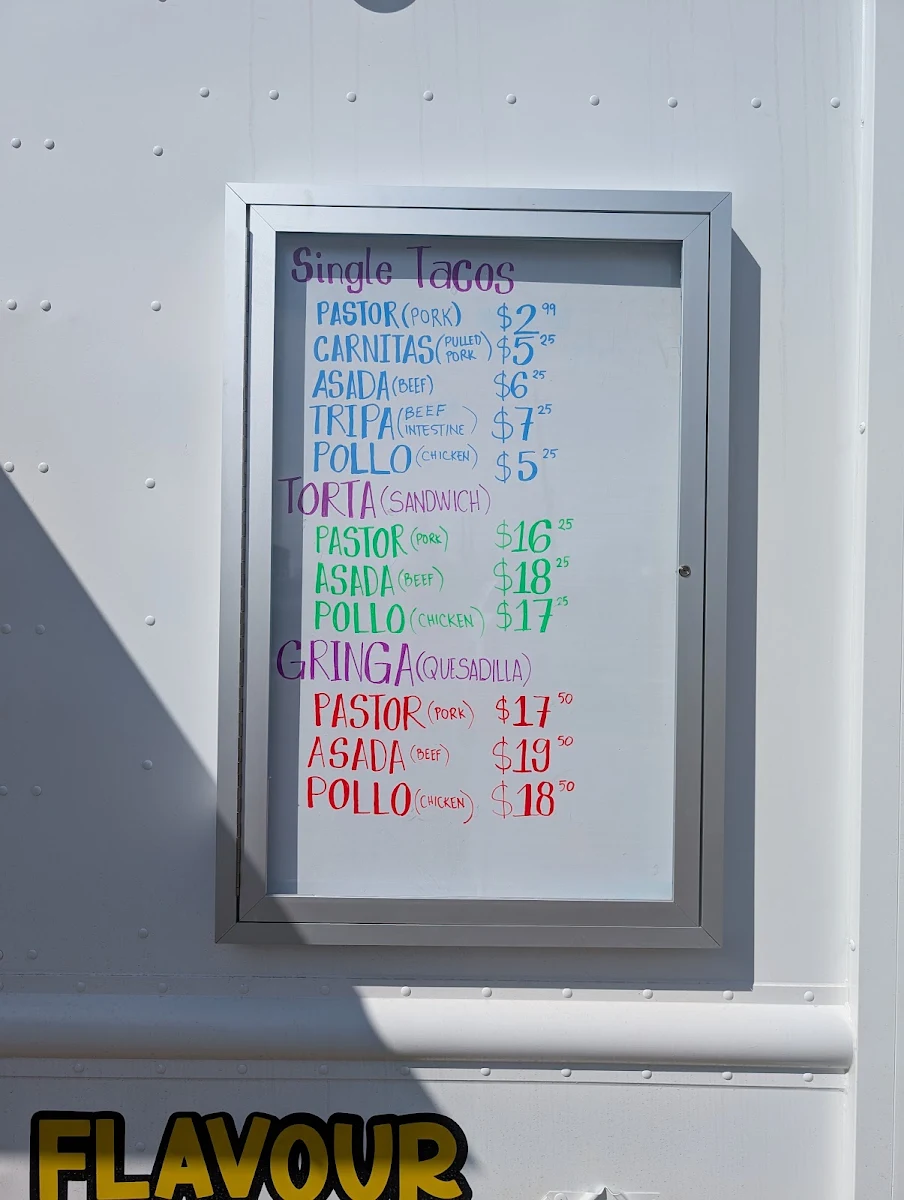 Single Tacos
PASTOR (PORK) $2.99
CARNITAS (PULLED PORK) $5.25
ASADA (BEEF) $6.25
TRIPA (BEEF INTESTINE) $7.25
POLLO (CHICKEN) $5.25
TORTA (SANDWICH)
PASTOR (PORK) $16.25
ASADA (BEEF) $18.25
POLLO (CHICKEN) $17.25
GRINGA (QUESADILLA)
PASTOR (PORK) $17.50
ASADA (BEEF) $19.50
POLLO (CHICKEN) $18.50
FLAVOUR